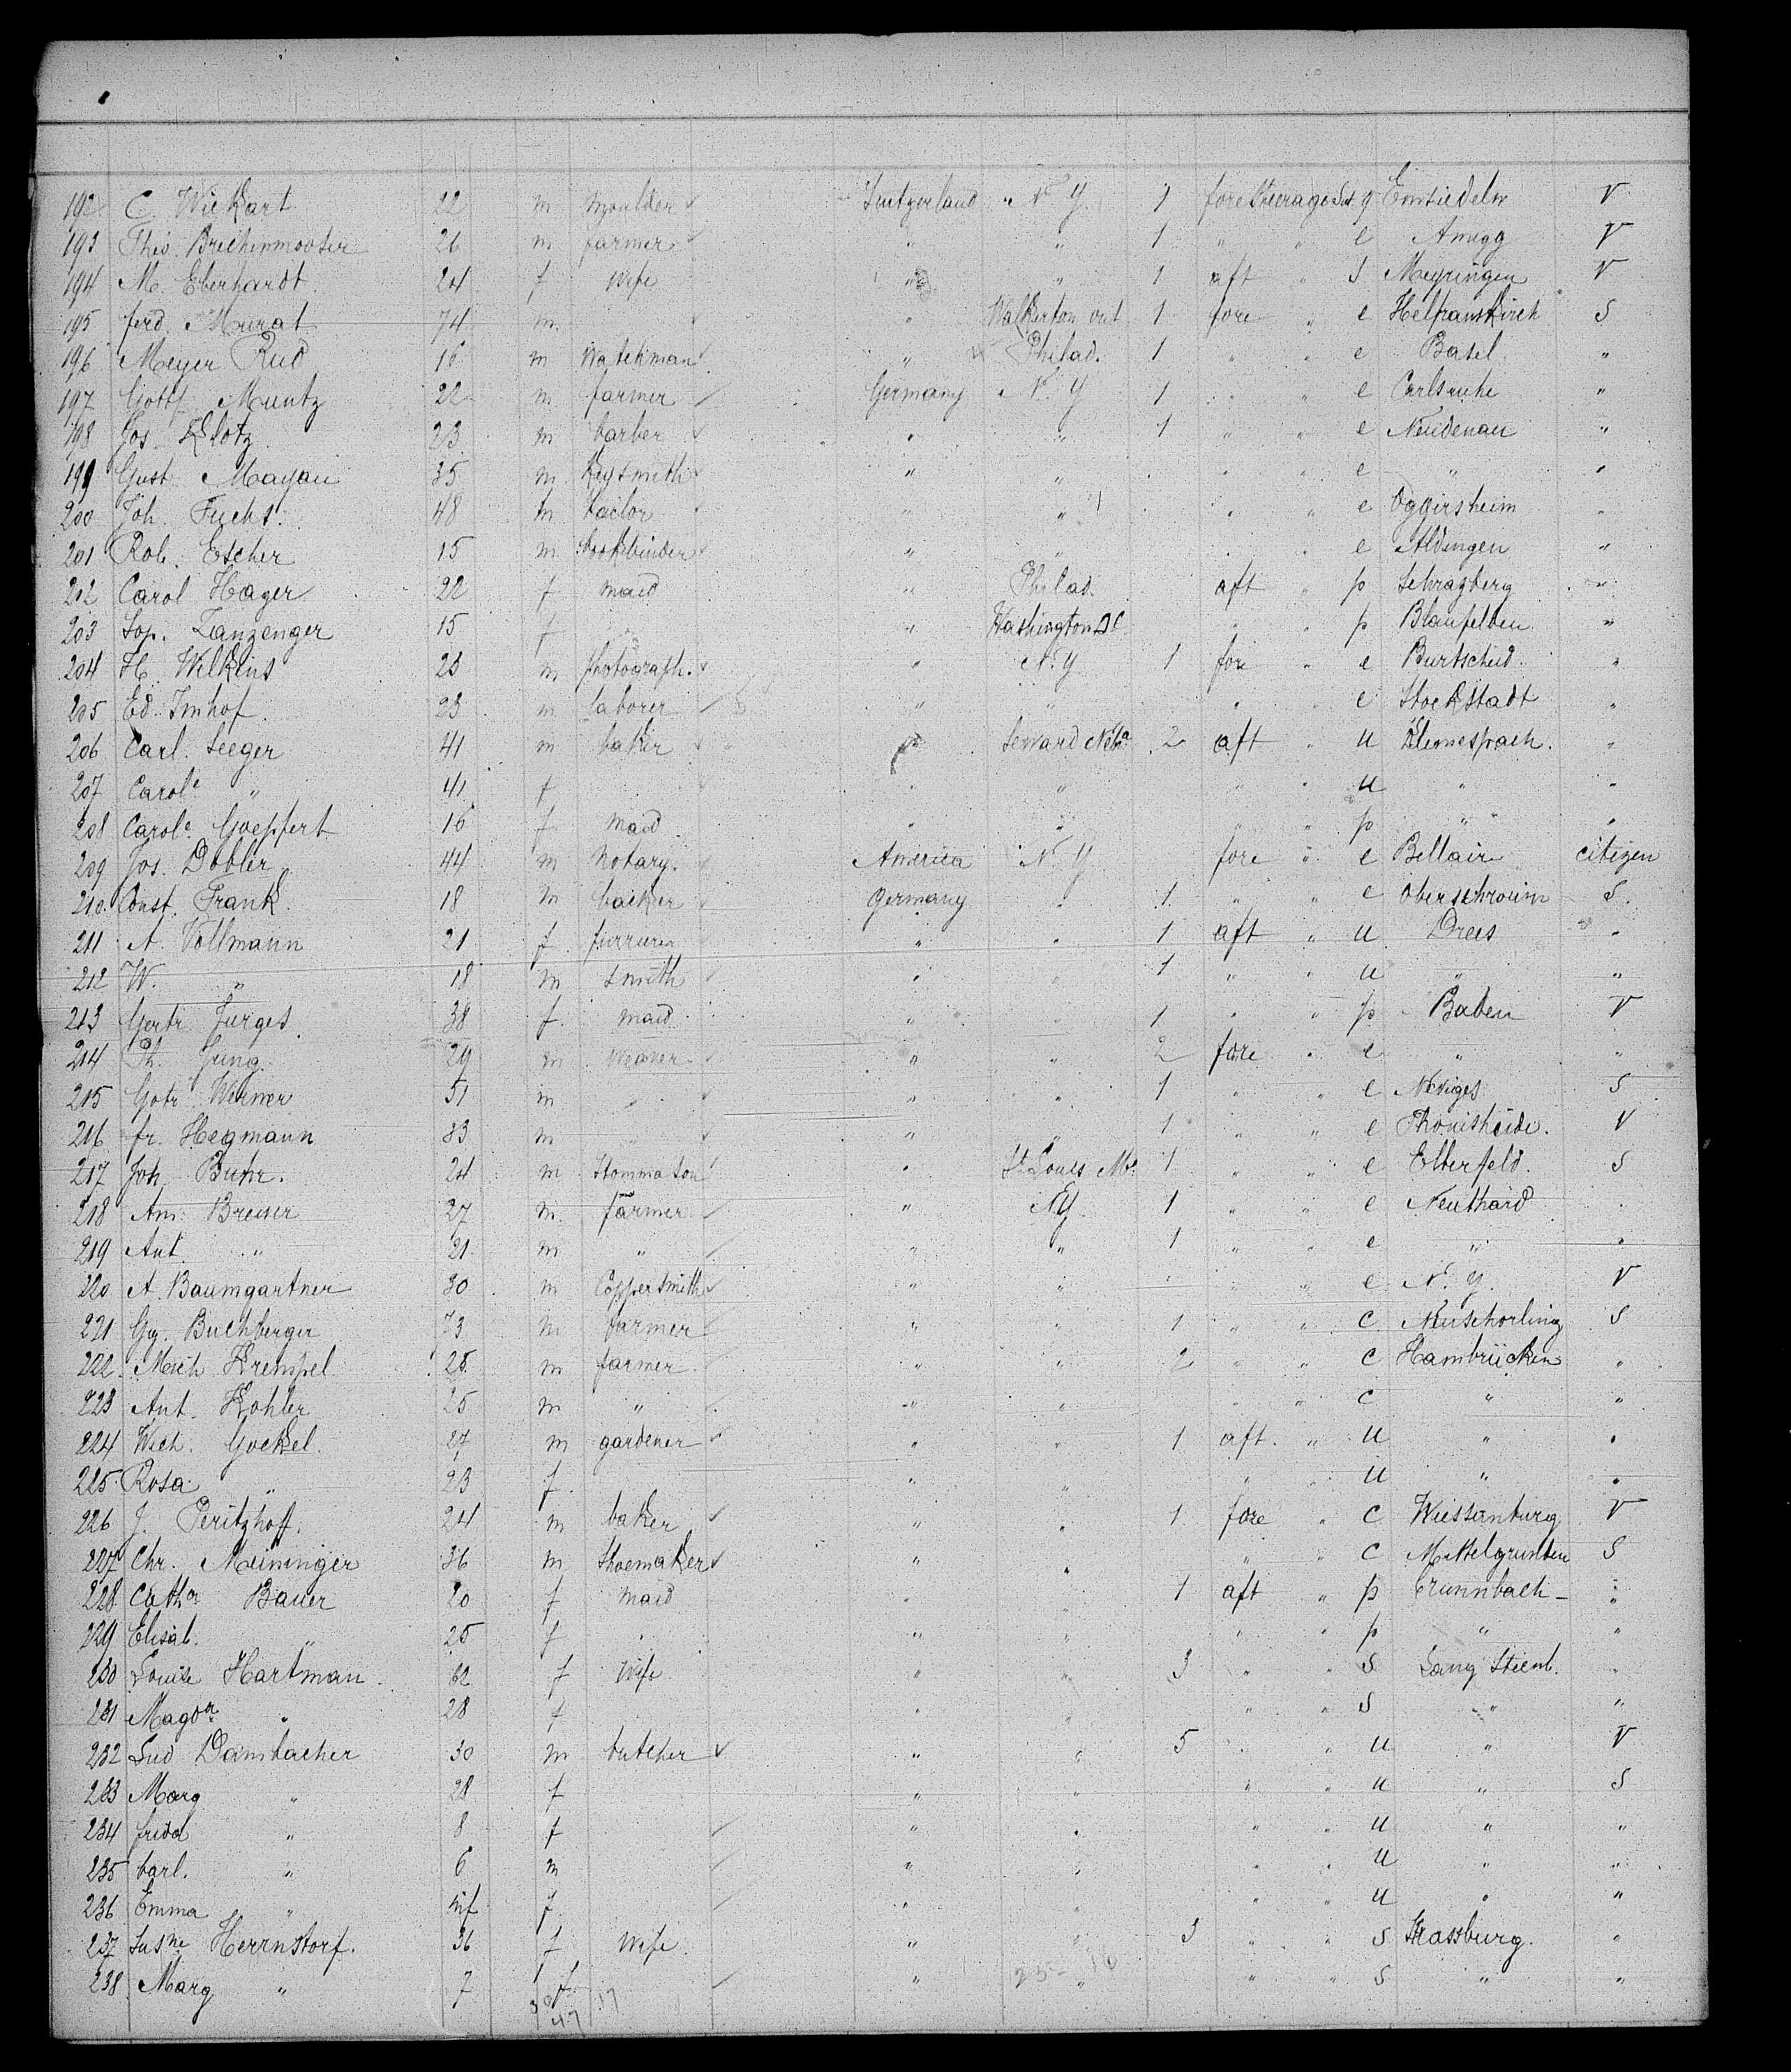 192 C. Wickart 22 m moulder Switzerland " N. Y. 1 fore Steerage Sct. g Einsiedeln V
193 Theo. 26 m farmer " " 1 " " e Amigg V
194 M. Eberhardt 24 f Wife " " 1 aft " S Meyringen V
195 ferd. Murat 74 m " Walkerton ont 1 fore " e Helfranskirch S
196 Meyer Rud 16 m Watchman " Philad. 1 " " e Basel "
197 Gottf. Muntz 22 m farmer Germany N. Y 1 " " e Carlsruhe "
198 Jos. Klotz 23 m barber " " 1 " " e Neudenau "
199 Gust. Mayau 35 m Keysmith " " " " e " "
200 Joh. Fuchs. 48 m tailor " " 1 " " e Oggirsheim "
201 Rob. Escher 15 m bookbinder " " " " e Aldingen "
202 Carol Hager 22 f maid " Philad. aft " p Schrazberg "
203 Sop. Tanzenger 15 f " " Washington DC. " " p Blaufelden "
204 H. Wilkins 23 m photograph. " N. Y 1 fore " e Burtscheid. "
205 Ed. Imhof. 23 m laborer " " " " e Stockstadt "
206 Carl. Seeger 41 m baker " Seward Neba. 2 aft " u "
207 Carole " 41 f " " " " u " "
208 Carole. Goeppert 16 f maid " " " " p " "
209 Jos. Dobler 44 m notary. America N. Y fore " e Bellair citizen
210. Const. Frank. 18 m backer Germany " 1. " " e S.
211 A. Vollmann 21 f " " 1 aft " u Drees "
212 W. " 18 m smith " " 1 " " u " "
213 Gertr. Jurges 38 f. maid " " 1 " " p Baden V
214 Th. Jung. 29 m Weaver " " 2 fore " e " "
215 Gotr. Werner 51 m " " " 1 " " e Neviges S
216 fr. Hegmann 33 m " " " 1 " " e Thonisheide. V
217 Joh. Buhr. 24 m " St. Louis Mo. 1 " " e Elberfeld. S
218 Am. Breuer 27 m. farmer " N.Y. 1 " " e Neuthard "
219 Ant. " 21 m " " " 1 " " e " "
220 A. Baumgartner 30 m Coppersmith " " " " " e N. Y. V
221 Gg. Buchberger 73 m farmer " " 1 " " c Neuschorling S
222. Mich Krempel 25 m farmer " " 2 " " c Hambrücken "
223 Ant. Kohler 25 m " " " " " c " "
224 Wich. Gockel. 27 m gardener " " 1 aft. " u " "
225. Rosa " 23 f " " " " u " "
226 J. Peritzhoff. 24 m baker " " 1 fore " c Wiessenburg V
227 Chr. Meininger 36 m Shoemaker " " " " c Mittelgrunden S
228 Catha Bauer 20 f maid " " 1 aft " p Crunnbach "
229 Elisab. " 25 f " " " " " p " "
230 Louise Hartman 62 f Wife " " 3 " " S Lang Stienb. "
231 Magda " 28 f " " " " S " "
232 Lud Dambacher 30 m butcher " " 5 " " u " V
233 Marg " 28 f " " " " u " S
234 frida " 8 f " " " " u " "
235 carl. " 6 m " " " " u " "
236 Emma " inf f " " " " u " "
237 Susne Herrnstorf. 36 f Wife " " 3 " " S Strassburg. "
238 Marg " 7 f " " " " S " "
30 17
47
25 - 16